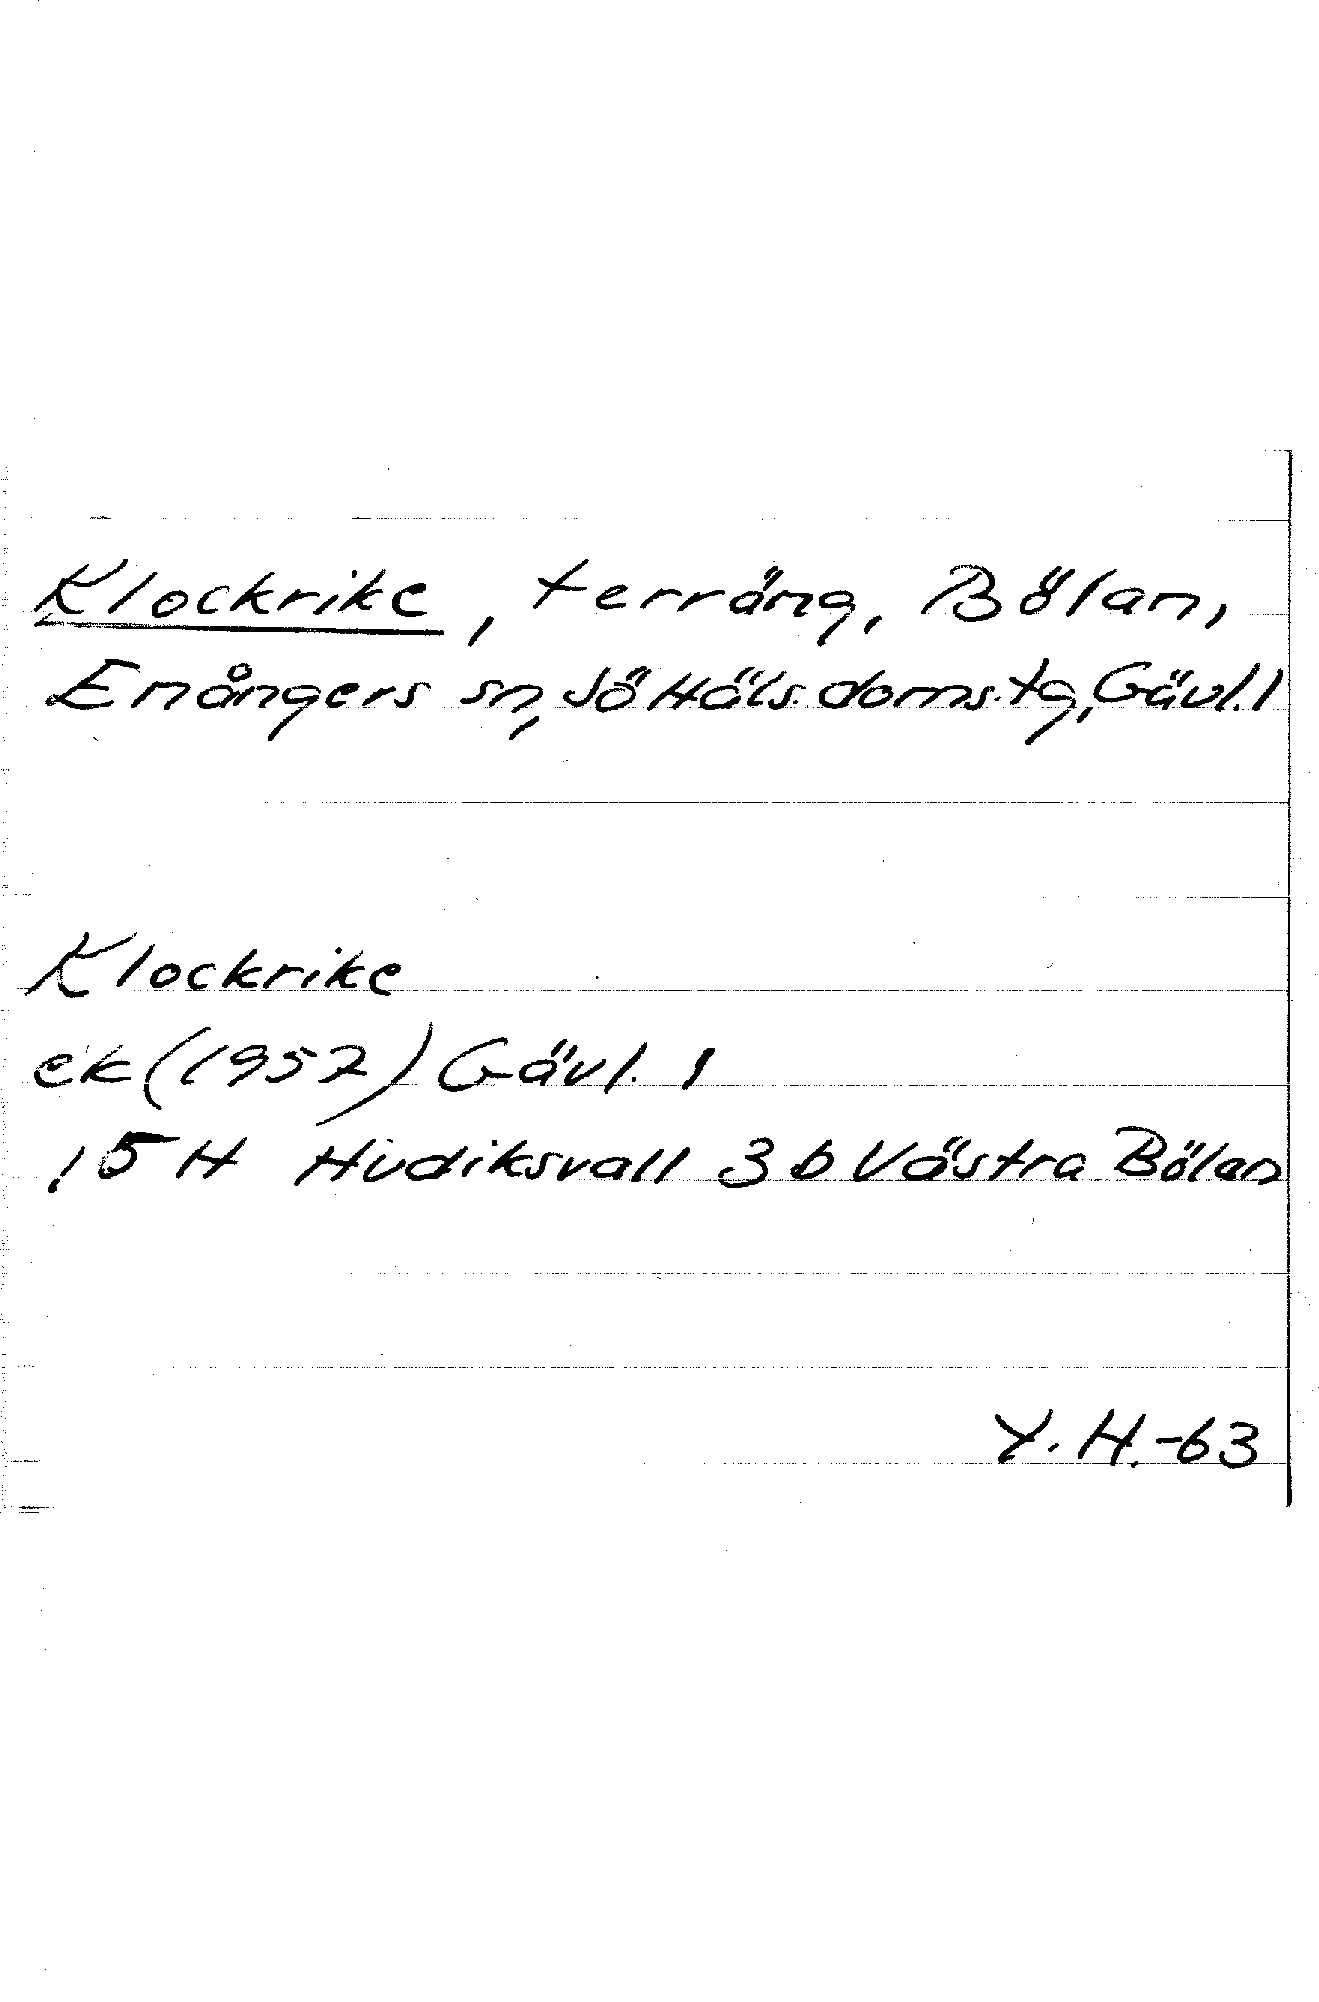 Klockrike, terräng, Bölan,
Enångers sn, Jö Häls. doms. tg, Gävl. l
Klockrike
ek (1957) Gävl. l
15 H Hudiksvall 3 b Västra Bölan
Y. H. -63